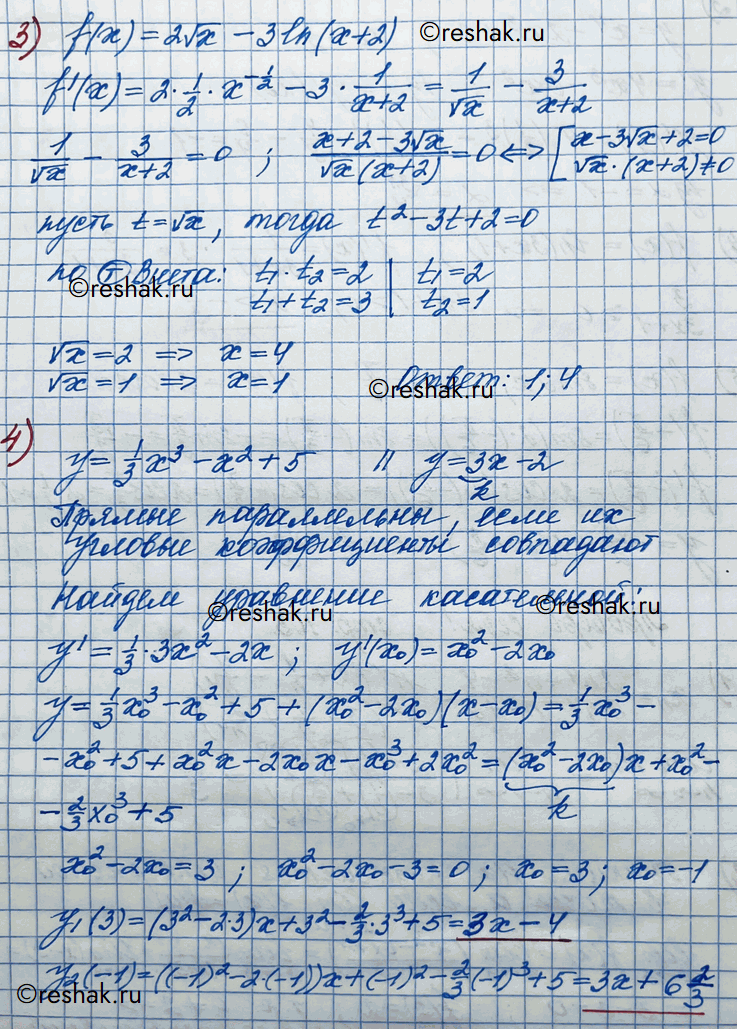 3) f(x) = 2√x − 3ln(x+2) ©reshak.ru
f'(x) = 2·1/2·x^(−1/2) − 3·1/(x+2) = 1/√x − 3/(x+2)
1/√x − 3/(x+2) = 0 ; (x+2−3√x)/(√x(x+2)) = 0 <=> [x−3√x+2=0
√x·(x+2)≠0
пусть t=√x, тогда t²−3t+2=0
по Т Виета: t₁·t₂=2 | t₁=2
©reshak.ru t₁+t₂=3 | t₂=1
√x=2 => x=4
√x=1 => x=1 ©reshak.ru Ответ: 1; 4
4) y = 1/3x³ − x² + 5 || y = 3x−2
k
Прямые параллельны, если их
угловые коэффициенты совпадают
Найдем уравнение касательной:
©reshak.ru ©reshak.ru
y' = 1/3·3x²−2x ; y'(x₀) = x₀²−2x₀
y = 1/3x₀³−x₀²+5+(x₀²−2x₀)(x−x₀) = 1/3x₀³−
−x₀²+5+x₀²x−2x₀x−x₀³+2x₀² = (x₀²−2x₀)x+x₀²−
k
−2/3x₀³+5
x₀²−2x₀=3 ; x₀²−2x₀−3=0 ; x₀=3 ; x₀=−1
y₁(3) = (3²−2·3)x+3²−2/3·3³+5 = 3x−4
y₂(−1) = ((−1)²−2·(−1))x+(−1)²−2/3(−1)³+5 = 3x+6 2/3
©reshak.ru ©reshak.ru